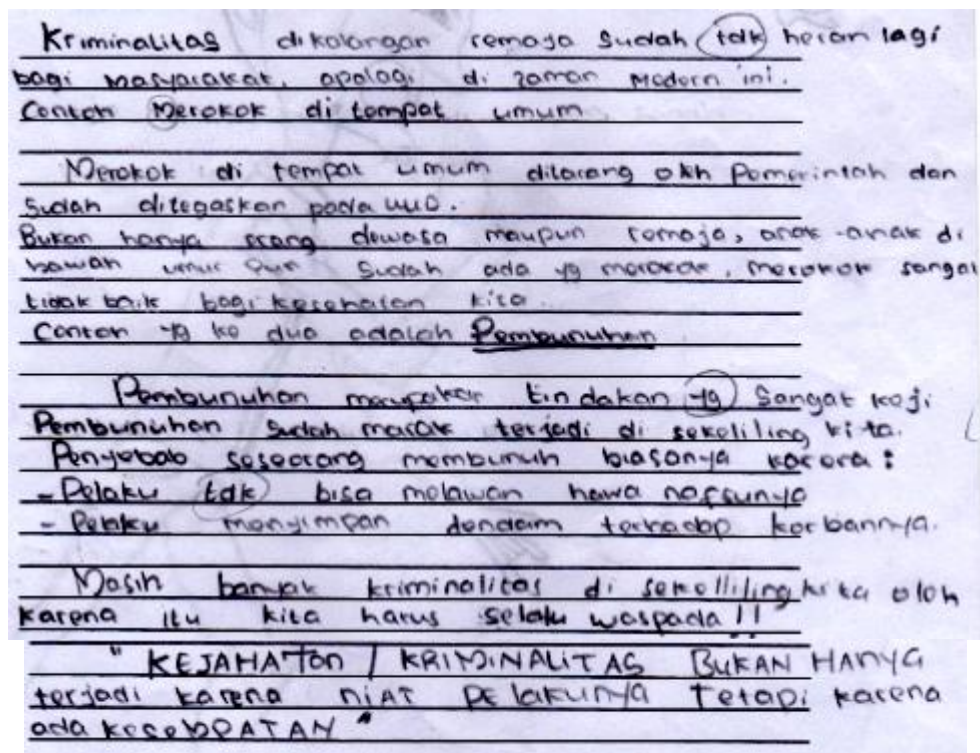 Kriminalitas dikalangan remaja sudah tdk heran lagi
bagi masyarakat, apalagi di zaman modern ini.
Contoh Merokok di tempat umum
Merokok di tempat umum dilarang oleh Pemerintah dan
Sudah ditegaskan pada UUD.
Bukan hanya orang dewasa maupun remaja, anak-anak di
bawah umur pun sudah ada yg merokok, merokok sangat
tidak baik bagi kesehatan kita.
Contoh yg ke dua adalah Pembunuhan
Pembunuhan merupakan tindakan yg Sangat keji
Pembunuhan sudah marak terjadi di sekeliling kita.
Penyebab seseorang membunuh biasanya karena :
- Pelaku tdk bisa melawan hawa nafsunya
- Pelaku menyimpan dendam terhadap korbannya.
Masih banyak kriminalitas di sekelliling kita oleh
karena itu kita harus selalu waspada !!
" KEJAHATan / KRIMINALITAS BUKAN HANYA
terjadi karena niAT PElakunya Tetapi karena
ada kesemPATAN "